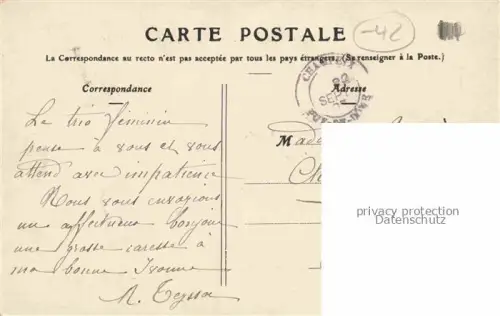 CARTE POSTALE
-42
La Correspondance au recto n'est pas acceptée par tous les pays étrangers. (Se renseigner à la Poste.)
CHAMPEIX
20
SEPT
PUY-DE-DOME
Correspondance
Adresse
Le trio féminin
pense à vous et vous
attend avec impatience
Nous vous envoyons
un affectueux bonjour
une grosse caresse à
ma bonne Yvonne
Made
M
privacy protection
Datenschutz